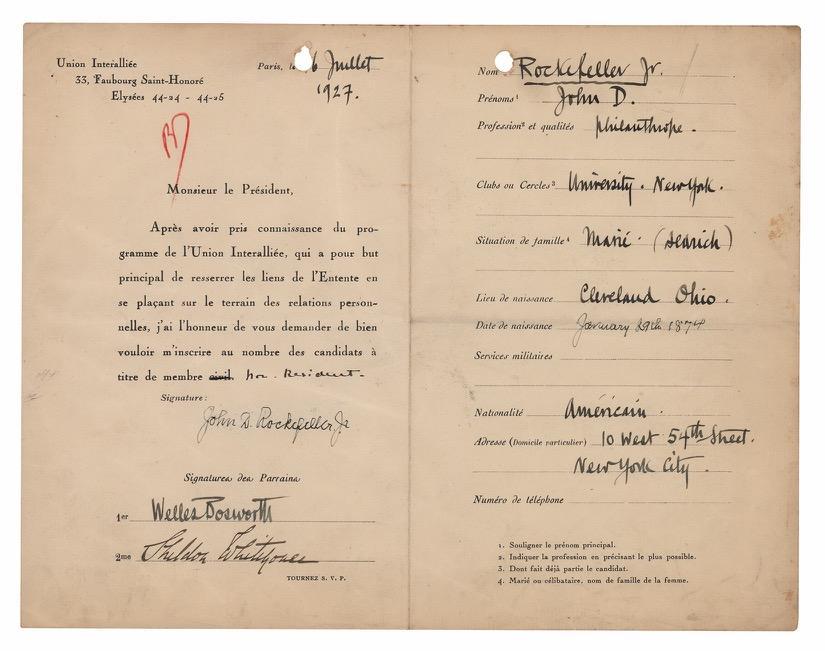 Union Interalliée
33, Faubourg Saint-Honoré
Elysées 44-24 - 44-25
Paris, le 6 Juillet
1927.
Monsieur le Président,
Après avoir pris connaissance du pro-
gramme de l'Union Interalliée, qui a pour but
principal de resserrer les liens de l'Entente en
se plaçant sur le terrain des relations person-
nelles, j'ai l'honneur de vous demander de bien
vouloir m'inscrire au nombre des candidats à
titre de membre civil non-Resident-
Signature :
John D. Rockefeller, Jr
Signatures des Parrains
1er Welles Bosworth
2me Sheldon Whitehouse
TOURNEZ S. V. P.
Nom Rockefeller Jr.
Prénoms¹ John D.
Profession² et qualités philanthrope.
Clubs ou Cercles³ University. New York.
Situation de famille⁴ Marié. (Aldrich)
Lieu de naissance Cleveland Ohio.
Date de naissance January 29th 1874
Services militaires
Nationalité Américain.
Adresse (Domicile particulier) 10 West 54th Street.
New York City.
Numéro de téléphone
1. Souligner le prénom principal.
2. Indiquer la profession en précisant le plus possible.
3. Dont fait déjà partie le candidat.
4. Marié ou célibataire, nom de famille de la femme.